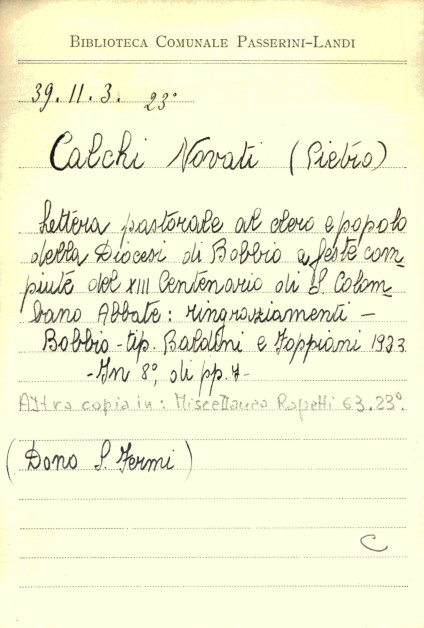 BIBLIOTECA COMUNALE PASSERINI-LANDI
39.11.3. 23°
Calchi Novati (Pietro)
Lettera pastorale al clero e popolo
della Diocesi di Bobbio a feste com=
piute del XIII Centenario di S. Colom=
bano Abbate: ringraziamenti —
Bobbio - tip. Baldini e Foppiani 1923
- In 8°, di pp. 7 -
Altra copia in: Miscellanea Rapetti 63.23°.
(Dono S. Fermi)
C